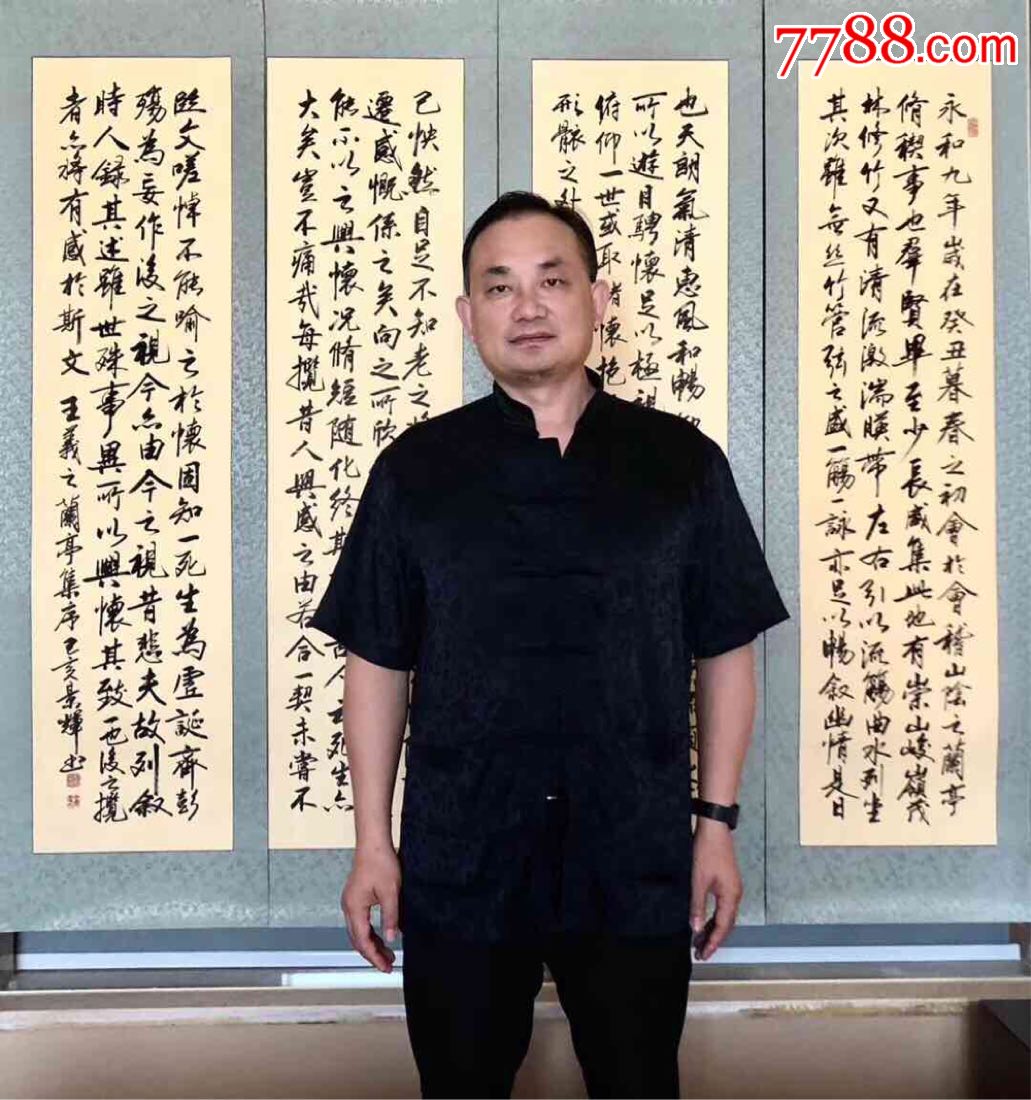 7788.com
永和九年歲在癸丑暮春之初會於會稽山陰之蘭亭
脩稧事也羣賢畢至少長咸集此地有崇山峻嶺茂
林修竹又有清流激湍暎帶左右引以流觴曲水列坐
其次雖無絲竹管弦之盛一觴一詠亦足以暢叙幽情是日
也天朗氣清惠風和暢
所以遊目騁懷足以極視
俯仰一世或取懷抱
形骸之外
已怏然自足不知老之將
遷感慨係之矣向之所欣
能不以之興懷況脩短随化終期古人云死生亦
大矣豈不痛哉每攬昔人興感之由若合一契未嘗不
臨文嗟悼不能喻之於懷固知一死生為虛誕齊彭
殤為妄作後之視今亦由今之視昔悲夫故列叙
時人録其述雖世殊事異所以興懷其致一也後之攬
者亦將有感於斯文 王羲之蘭亭集序己亥景輝书